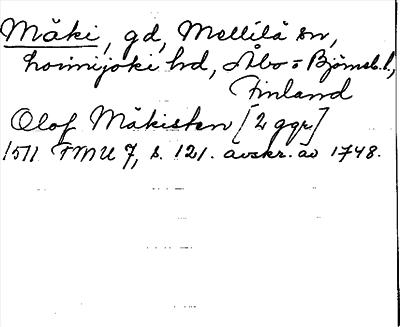 Mäki, gd, Mellilä sn,
Loimijoki hd, Åbo = Björneb. l.,
Finland
Olof Mäkisten [2 ggr]
1511 FMU 7, s. 121. avskr. av 1748.